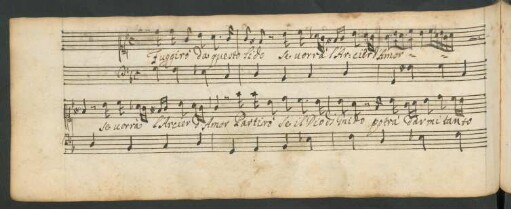 Fuggirò da questo lido se vorrà l'Arcier d'Amor
se vorrà l'Arcier d'Amor Partirò se il Dio di Gnido potrà darmi tanto